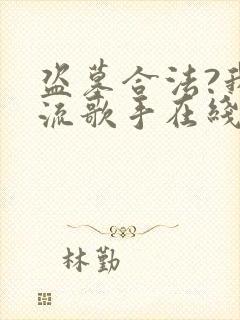 盗墓合法?我
流歌手在线
林勤